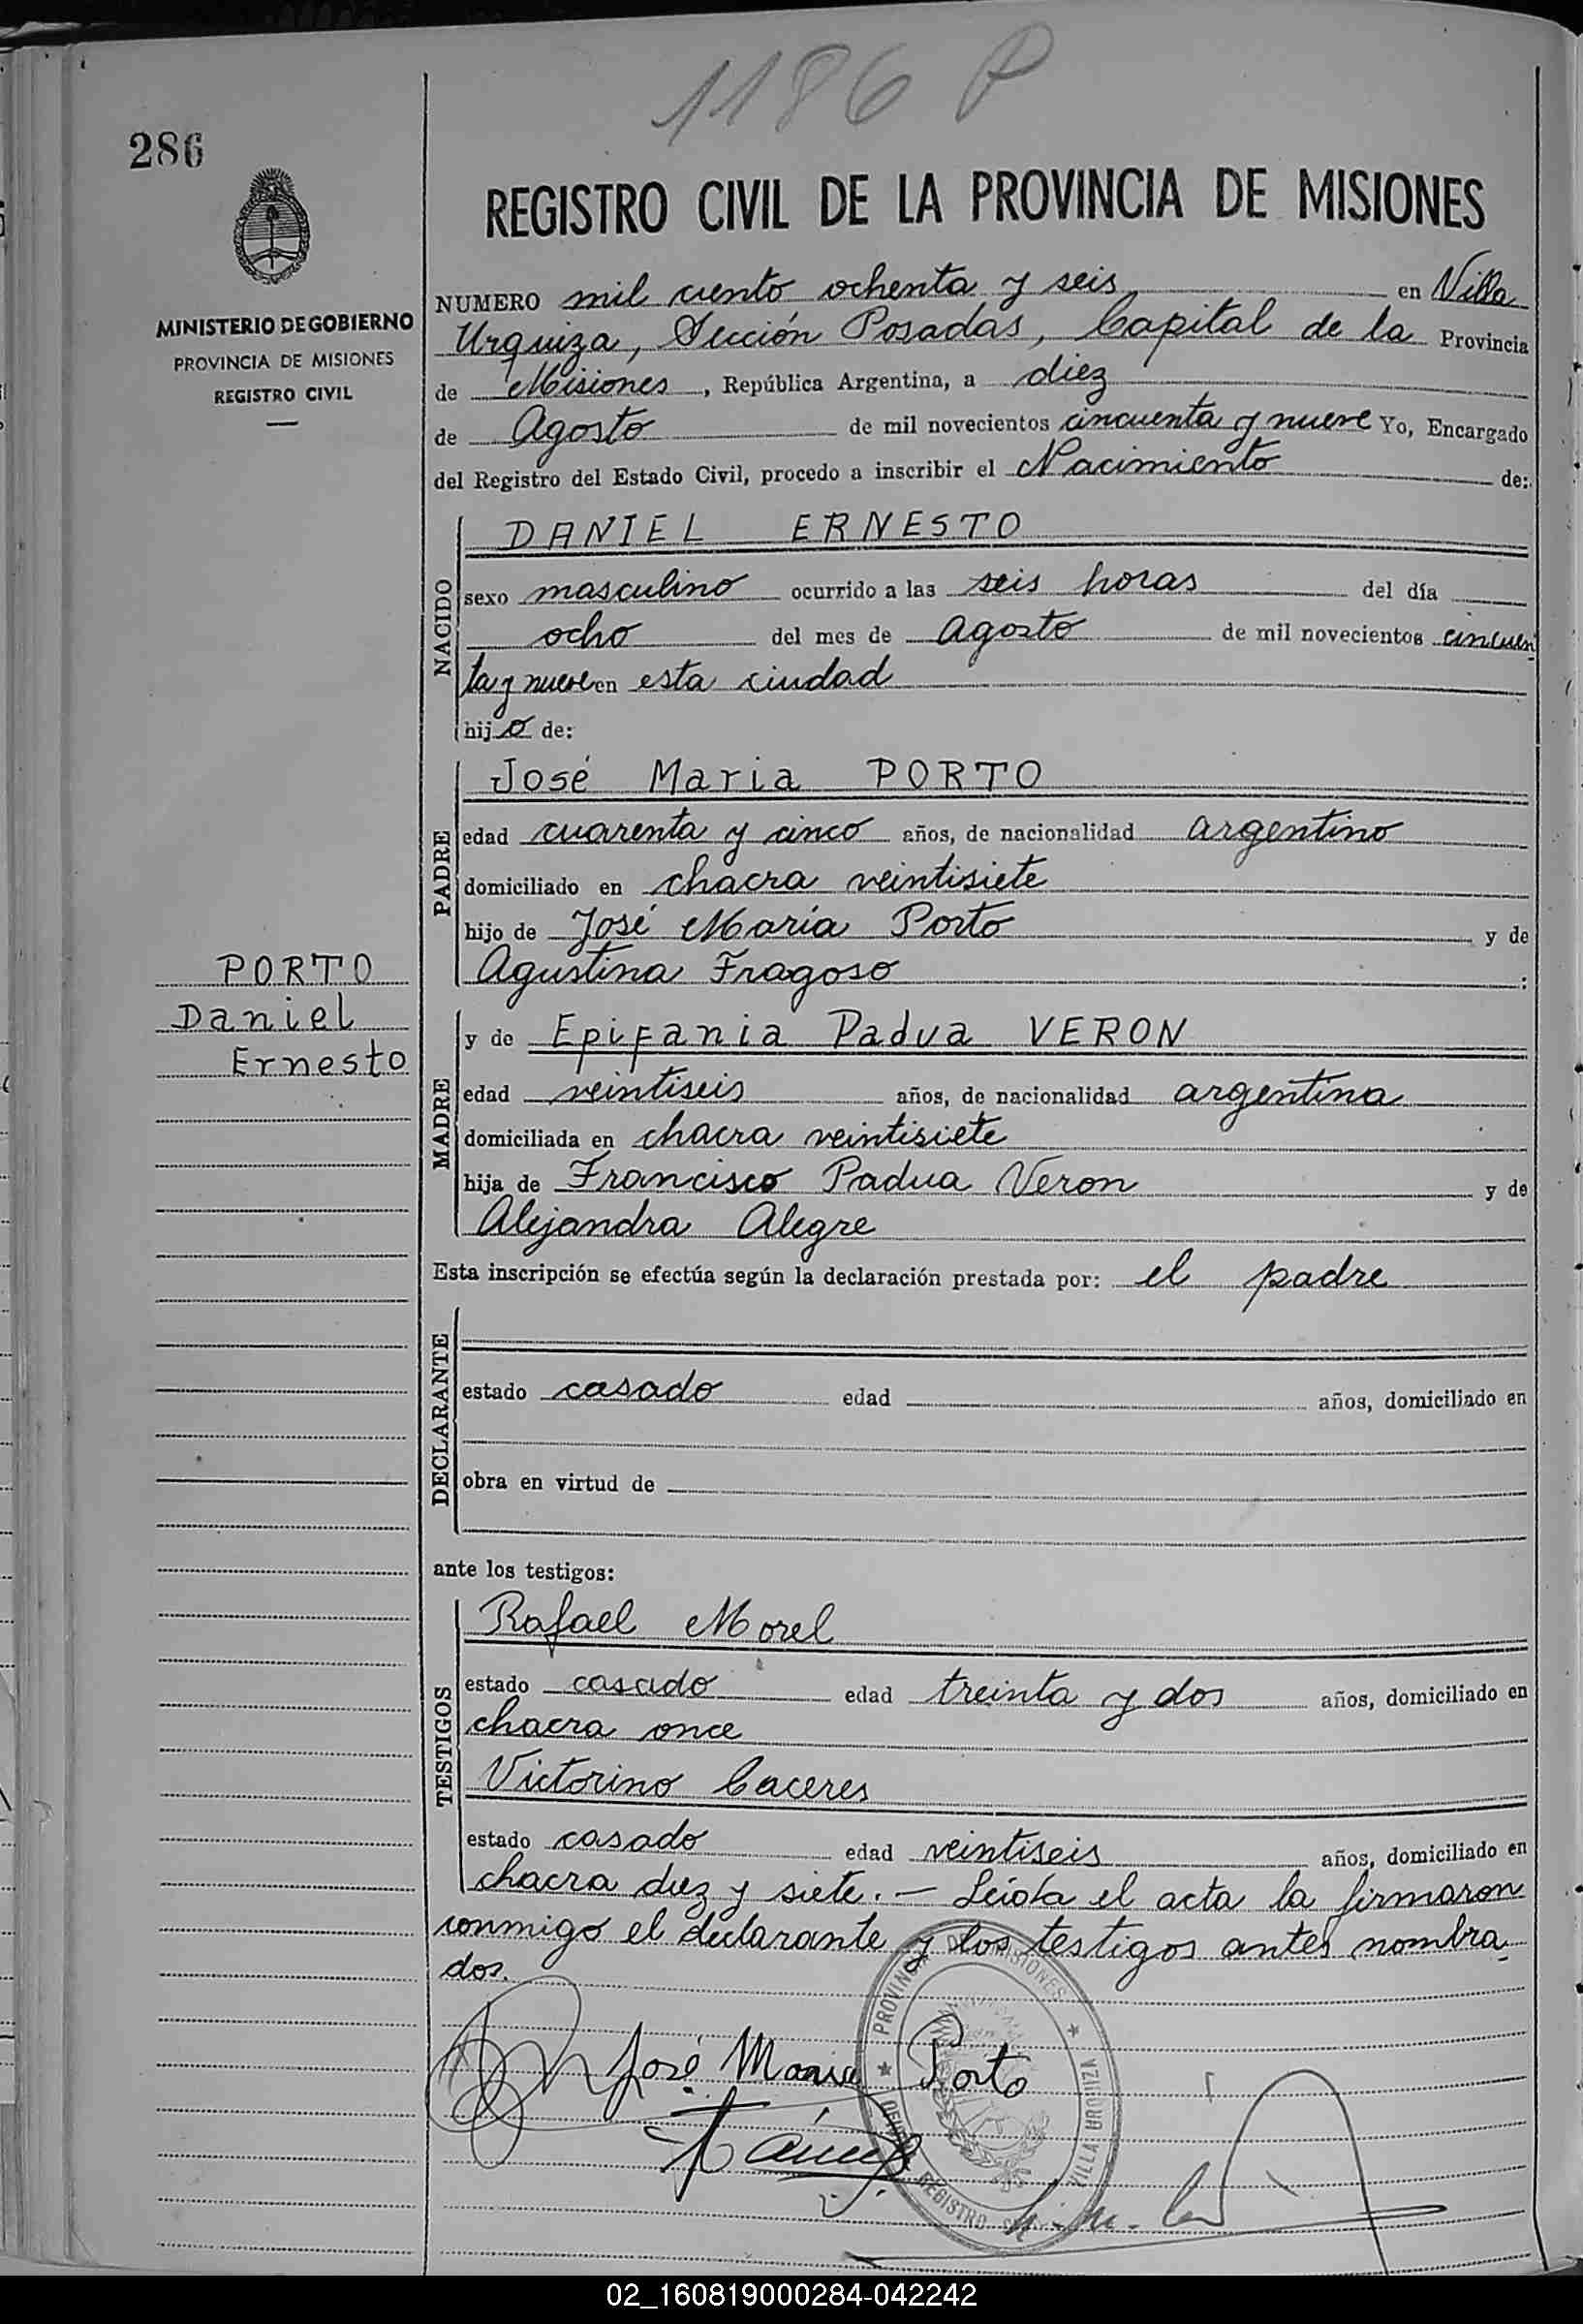 1186 P
286
REGISTRO CIVIL DE LA PROVINCIA DE MISIONES
MINISTERIO DE GOBIERNO
PROVINCIA DE MISIONES
REGISTRO CIVIL
NUMERO mil ciento ochenta y seis en Villa
Urquiza, Sección Posadas, Capital de la Provincia
de Misiones, República Argentina, a diez
de Agosto de mil novecientos cincuenta y nueve Yo, Encargado
del Registro del Estado Civil, procedo a inscribir el Nacimiento de:
NACIDO
DANIEL ERNESTO
sexo masculino ocurrido a las seis horas del día
ocho del mes de Agosto de mil novecientos cincuen
ta y nueve en esta ciudad
hijo de:
PADRE
José Maria PORTO
edad cuarenta y cinco años, de nacionalidad argentino
domiciliado en chacra veintisiete
hijo de José María Porto y de
Agustina Fragoso :
PORTO
Daniel
Ernesto
MADRE
y de Epifania Padua VERON
edad veintiseis años, de nacionalidad argentina
domiciliada en chacra veintisiete
hija de Francisco Padua Veron y de
Alejandra Alegre
Esta inscripción se efectúa según la declaración prestada por: el padre
DECLARANTE
estado casado edad años, domiciliado en
obra en virtud de
ante los testigos:
TESTIGOS
Rafael Morel
estado casado edad treinta y dos años, domiciliado en
chacra once
Victorino Caceres
estado casado edad veintiseis años, domiciliado en
chacra diez y siete. — Leida el acta la firmaron
conmigo el declarante y los testigos antes nombra-
dos.
José Maria Porto
PROVINCIA DE MISIONES
VILLA URQUIZA
REGISTRO
02_160819000284-042242